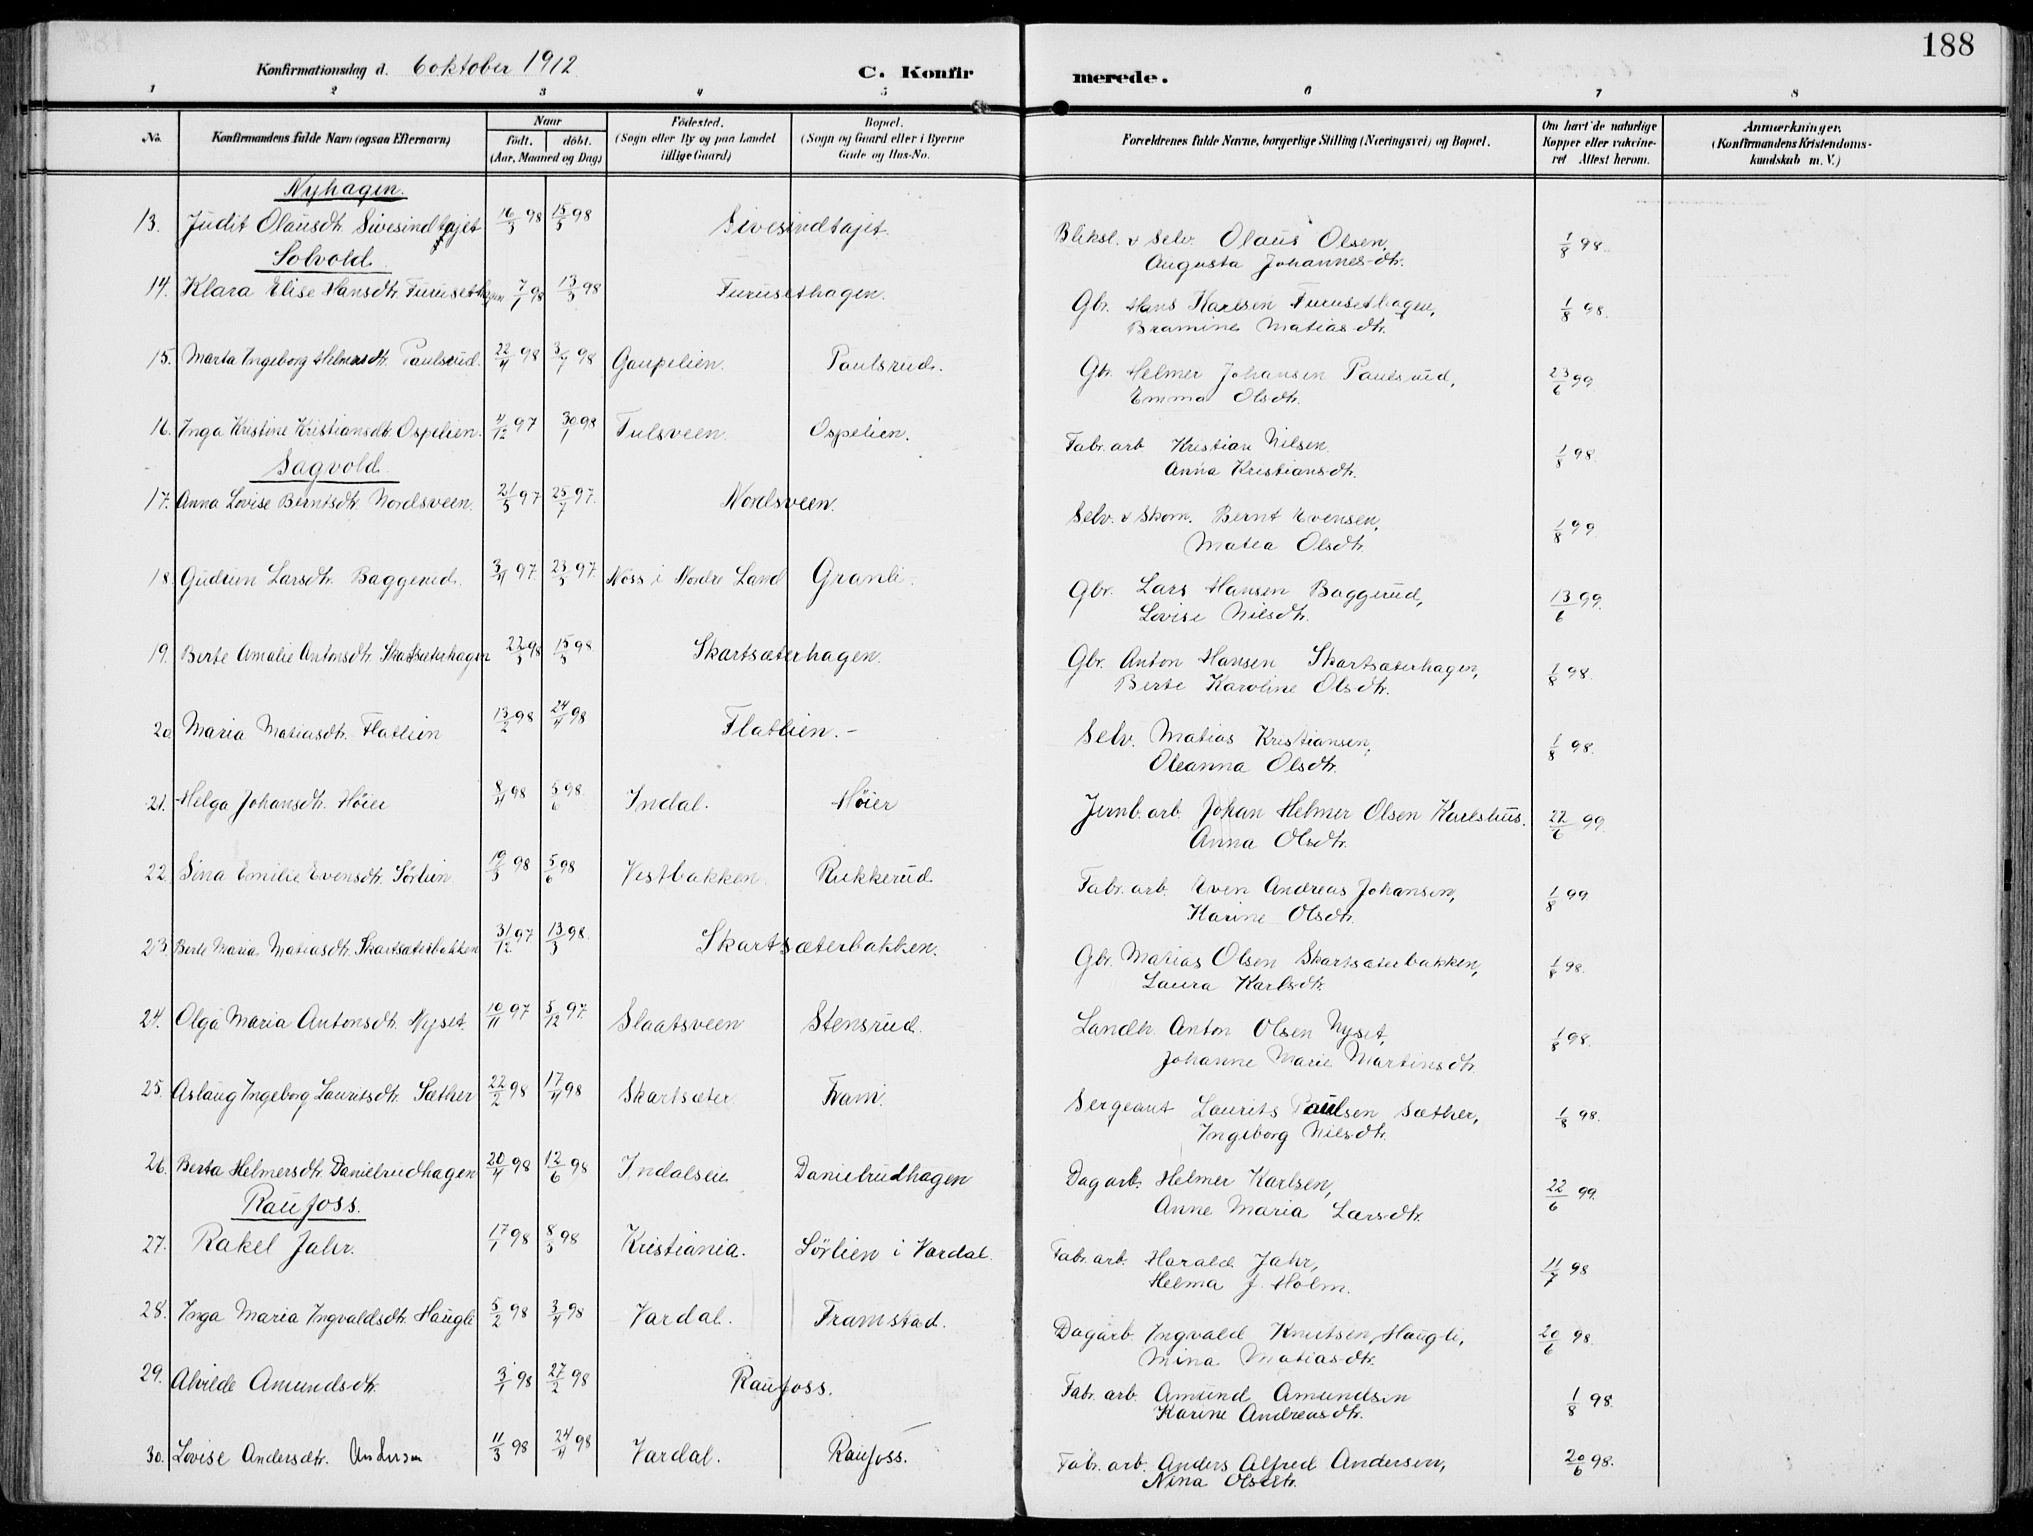 188
Konfirmationsdag d. 6 oktober 1912
C. Konfirmerede.
1 2 3 4 5 6 7 8
No. Konfirmandens fulde Navn (ogsaa Efternavn) Naar født. døbt. (Aar, Maaned og Dag) Fødested. (Sogn eller By og paa Landet tillige Gaard) Bopæl. (Sogn og Gaard eller i Byerne Gade og Hus-No. Forældrenes fulde Navne, borgerlige Stilling (Næringsvei) og Bopæl. Om havt de naturlige Kopper eller vakcineret Attest herom. Anmærkninger. (Konfirmandens Kristendomskundskab m. V.)
Nyhagen.
13. Judit Olausdtr. Sivesindtajet 16/3 98 15/5 98 Sivesindtajet. Bliksl. & Selv. Olaus Olsen, 1/8 98.
Augusta Johannesdtr.
Solvold
14. Klara Elise Hansdtr. Furusethagen 7/1 98 13/3 98 Furusethagen. Gbr. Hans Karlsen Furusethagen, 1/8 98.
Bramine Matiasdtr.
15. Marta Ingeborg Helmersdtr. Paulsrud. 22/4 98 3/7 98 Gaupelien. Paulsrud. Gbr. Helmer Johansen Paulsrud, 23/6 99
Emma Olsdtr.
16. Inga Kristine Kristiansdtr. Ospelien. 4/12 97 30/1 98 Fulsveen. Ospelien. Fabr. arb. Kristian Nilsen 1/8 98.
Anna Kristiansdtr.
Sagvold.
17. Anna Lovise Berntsdtr. Nordsveen. 21/5 97 25/7 97. Nordsveen. Selv. & Skom. Bernt Evensen, 1/8 99.
Matea Olsdtr.
18. Gudrun Larsdtr. Baggerud. 3/4 97. 23/5 97. Noss i Nordre Land Granli. Gbr. Lars Hansen Baggerud, 13/6 99.
Lovise Nilsdtr.
19. Berte Amalie Antonsdtr. Skartsæterhagen 22/3 98 15/5 98 Skartsæterhagen. Gbr. Anton Hansen Skartsæterhagen, 1/8 98.
Berte Karoline Olsdtr.
20 Maria Matiasdtr. Flatlien 13/2 98 24/4 98 Flatlien.- Selv. Matias Kristiansen, 1/8 98.
Oleanna Olsdtr.
21. Helga Johansdtr. Høier 8/4 98 5/6 98. Indal. Høier Jernb. arb. Johan Helmer Olsen Karlshus. 22/6 99.
Anna Olsdtr.
22. Sina Emilie Evensdtr. Sørlien. 19/3 98 5/6 98 Vestbakken. Rukkerud. Fabr. arb. Even Andreas Johansen, 1/8 99
Karine Olsdtr.
23. Berte Maria Matiasdtr. Skartsæterbakken 31/12 97 13/3 98. Skartsæterbakken. Gbr. Matias Olsen Skartsæterbakken, 1/8 98.
Laura Karlsdtr.
24. Olga Maria Antonsdtr. Nyset. 10/11 97 5/12 97. Slaatsveen Stensrud. Landh. Anton Olsen Nyset, 1/8 98.
Johanne Marie Martinsdtr.
25. Aslaug Ingeborg Lauritsdtr. Sæther 22/2 98 17/4 98 Skartsæter Fram. Sergeant Laurits Paulsen Sæther, 1/8 98.
Ingeborg Nilsdtr.
26. Berta Helmersdtr. Danielrudhagen 20/4 98 12/6 98 Indalseie Danielrudhagen Dagarb. Helmer Karlsen, 22/6 99.
Anne Maria Larsdtr.
Raufoss.
27. Rakel Jahr. 17/1 98 8/5 98 Kristiania. Sørlien i Vardal. Fabr. arb. Harald Jahr, 11/7 98
Helma J. Holm.
28. Inga Maria Ingvaldsdtr. Haugli 5/2 98 3/4 98 Vardal. Framstad. Dagarb. Ingvald Knutsen Haugli, 20/6 98.
Mina Matiasdtr.
29. Alvilde Amundsdtr. 3/1 98 27/2 98 Raufoss. Fabr. arb. Amund Amundsen 1/8 98.
Karine Andreasdtr.
30. Lovise Andersdtr. Andersen 11/3 98 24/4 98 Vardal. Raufoss. Fabr. arb. Anders Alfred Andersen, 20/6 98.
Nina Olsdtr.